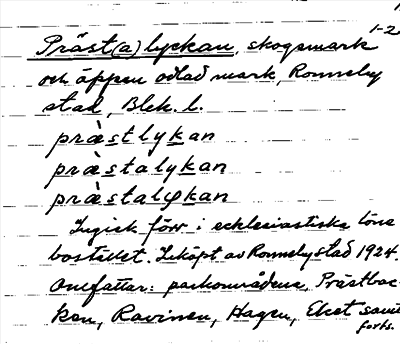 1-2
Präst(a)lyckan, skogsmark
och öppen odlad mark, Ronneby
stad, Blek. l.
præ̀stlykan
præ̀stalykan
præ̀stalφkan
Ingick förr i ecklesiastika löne
bostället. Inköpt av Ronneby stad 1924.
Omfattar: parkområdena, Prästbac-
ken, Ravinen, Hagen, Ekot samt
forts.